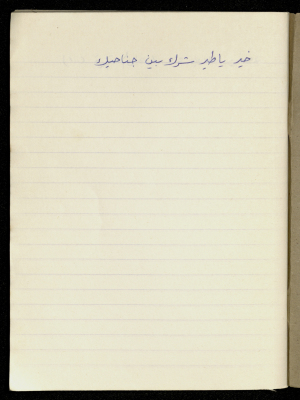 خير يا طير شرك بين جناحيك